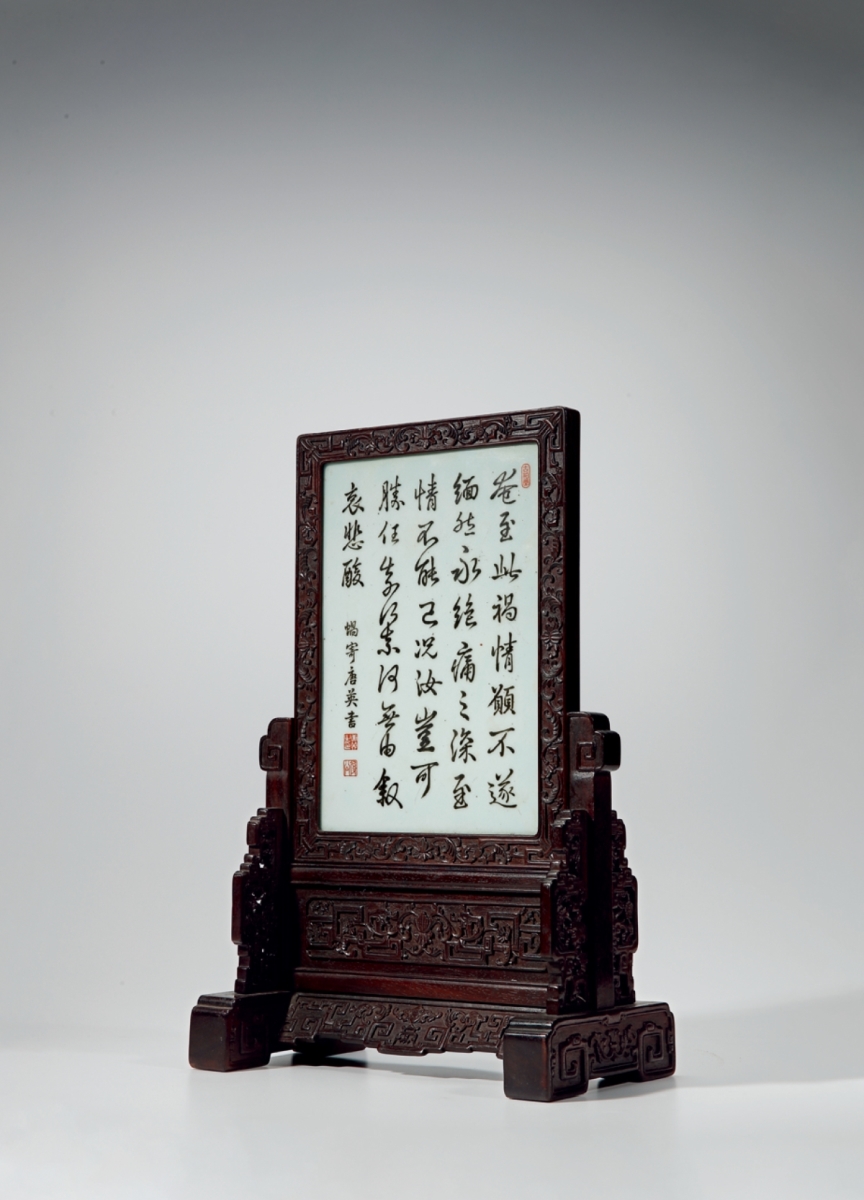 奄至此禍情願不遂
緬然永絶痛之深至
情不能已況汝豈可
勝任奈何奈何無由叙
哀悲酸
蝸寄唐英書